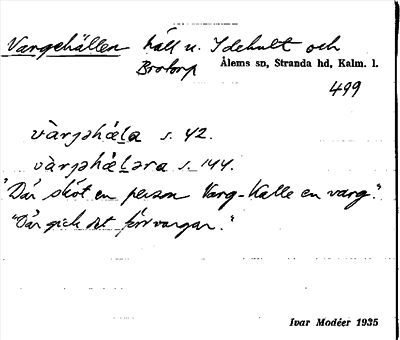 Vargehällen häll u. Idehult och
Brotorp Ålems sn, Stranda hd, Kalm. l.
499
s. 42.
s. 144.
"Där sköt en person Varg-Kalle en varg."
"Där gick det förr vargar."
Ivar Modéer 1935